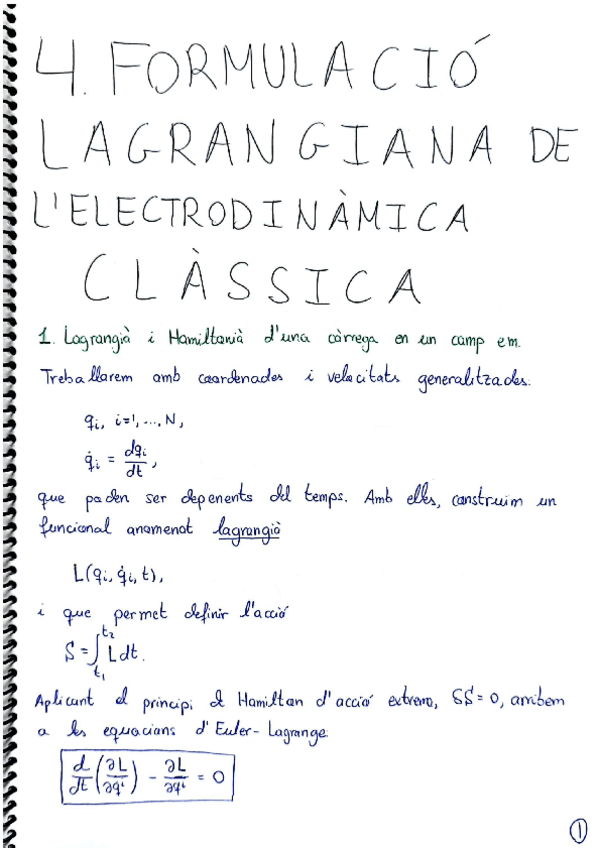 4. FORMULACIÓ
LAGRANGIANA DE
L'ELECTRODINÀMICA
CLÀSSICA
1. Lagrangià i Hamiltonià d'una càrrega en un camp em.
Treballarem amb coordenades i velocitats generalitzades.
qᵢ, i=1,...,N,
q̇ᵢ = dqᵢ/dt,
que poden ser depenents del temps. Amb elles, construim un
funcional anomenat lagrangià
L(qᵢ, q̇ᵢ, t),
i que permet definir l'acció
S = ∫_{t₁}^{t₂} L dt.
Aplicant el principi de Hamilton d'acció extrema, δS = 0, arribem
a les equacions d'Euler-Lagrange
d/dt (∂L/∂q̇ⁱ) - ∂L/∂qⁱ = 0
1